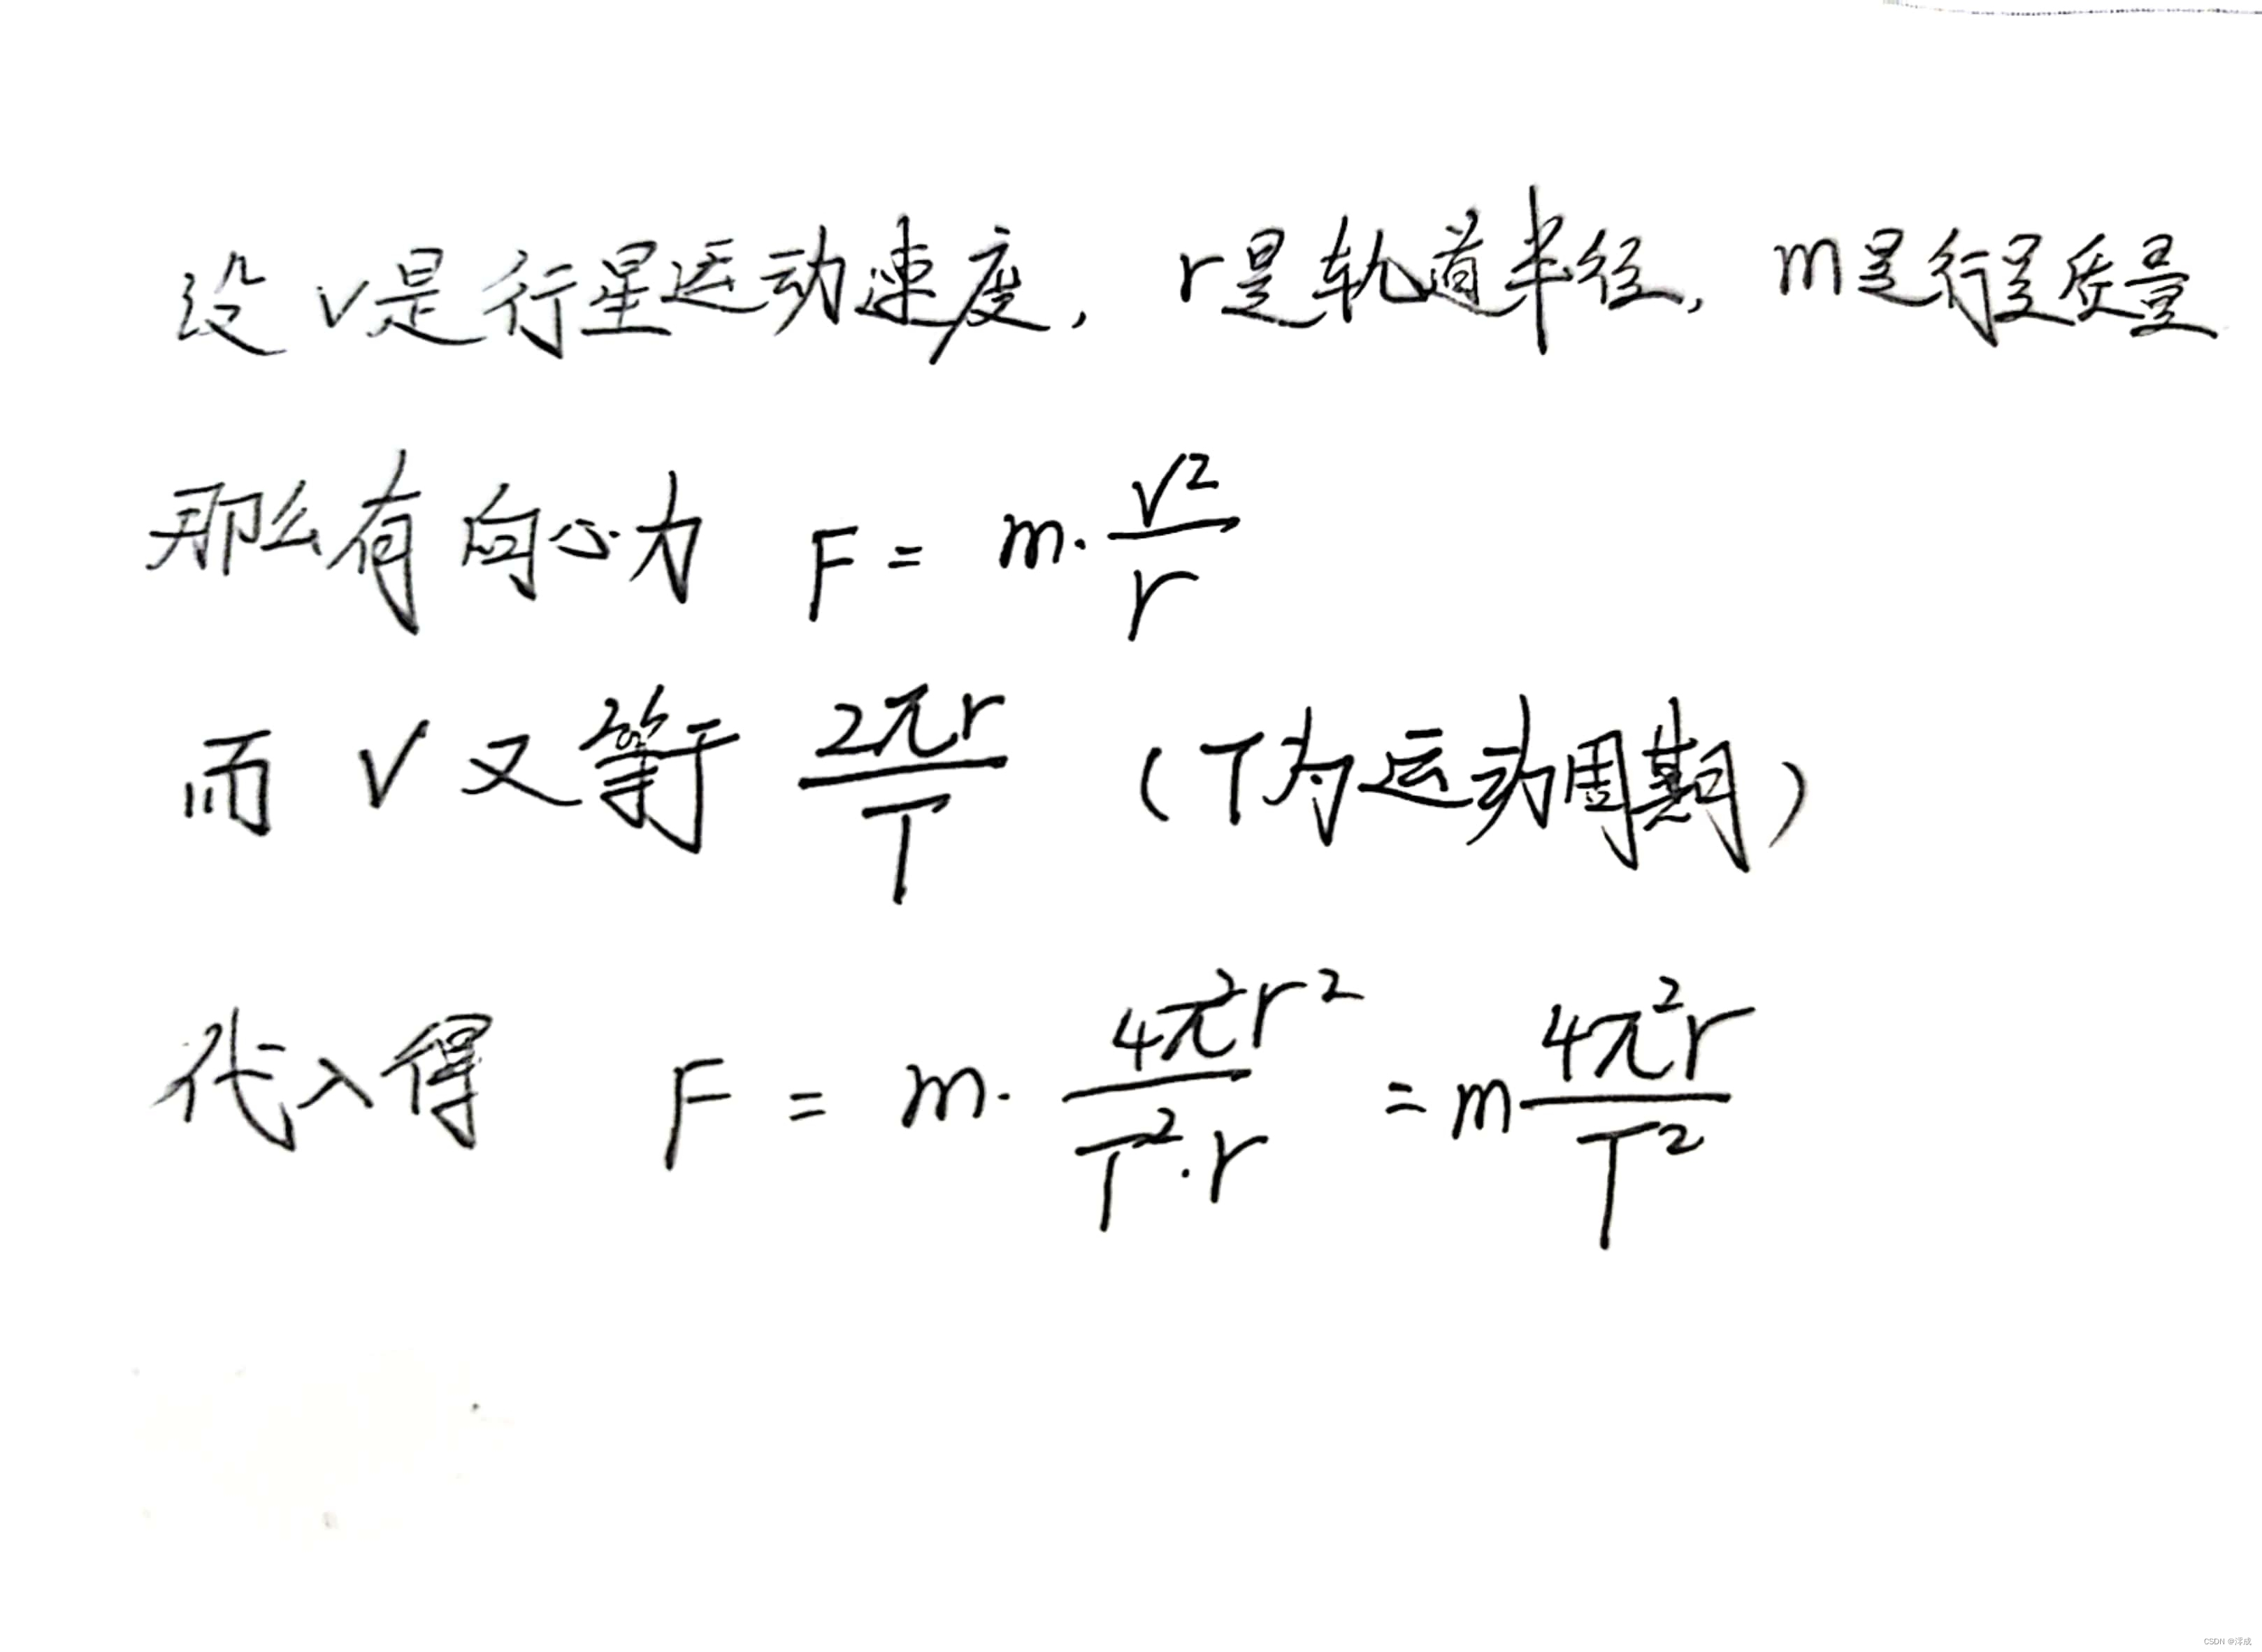 设 v是行星运动速度, r是轨道半径, m是行星质量
那么有向心力 F = m·v²/r
而 v 又等于 2πr/T (T为运动周期)
代入得 F = m·4π²r²/T²·r = m 4π²r/T²
CSDN @泽成